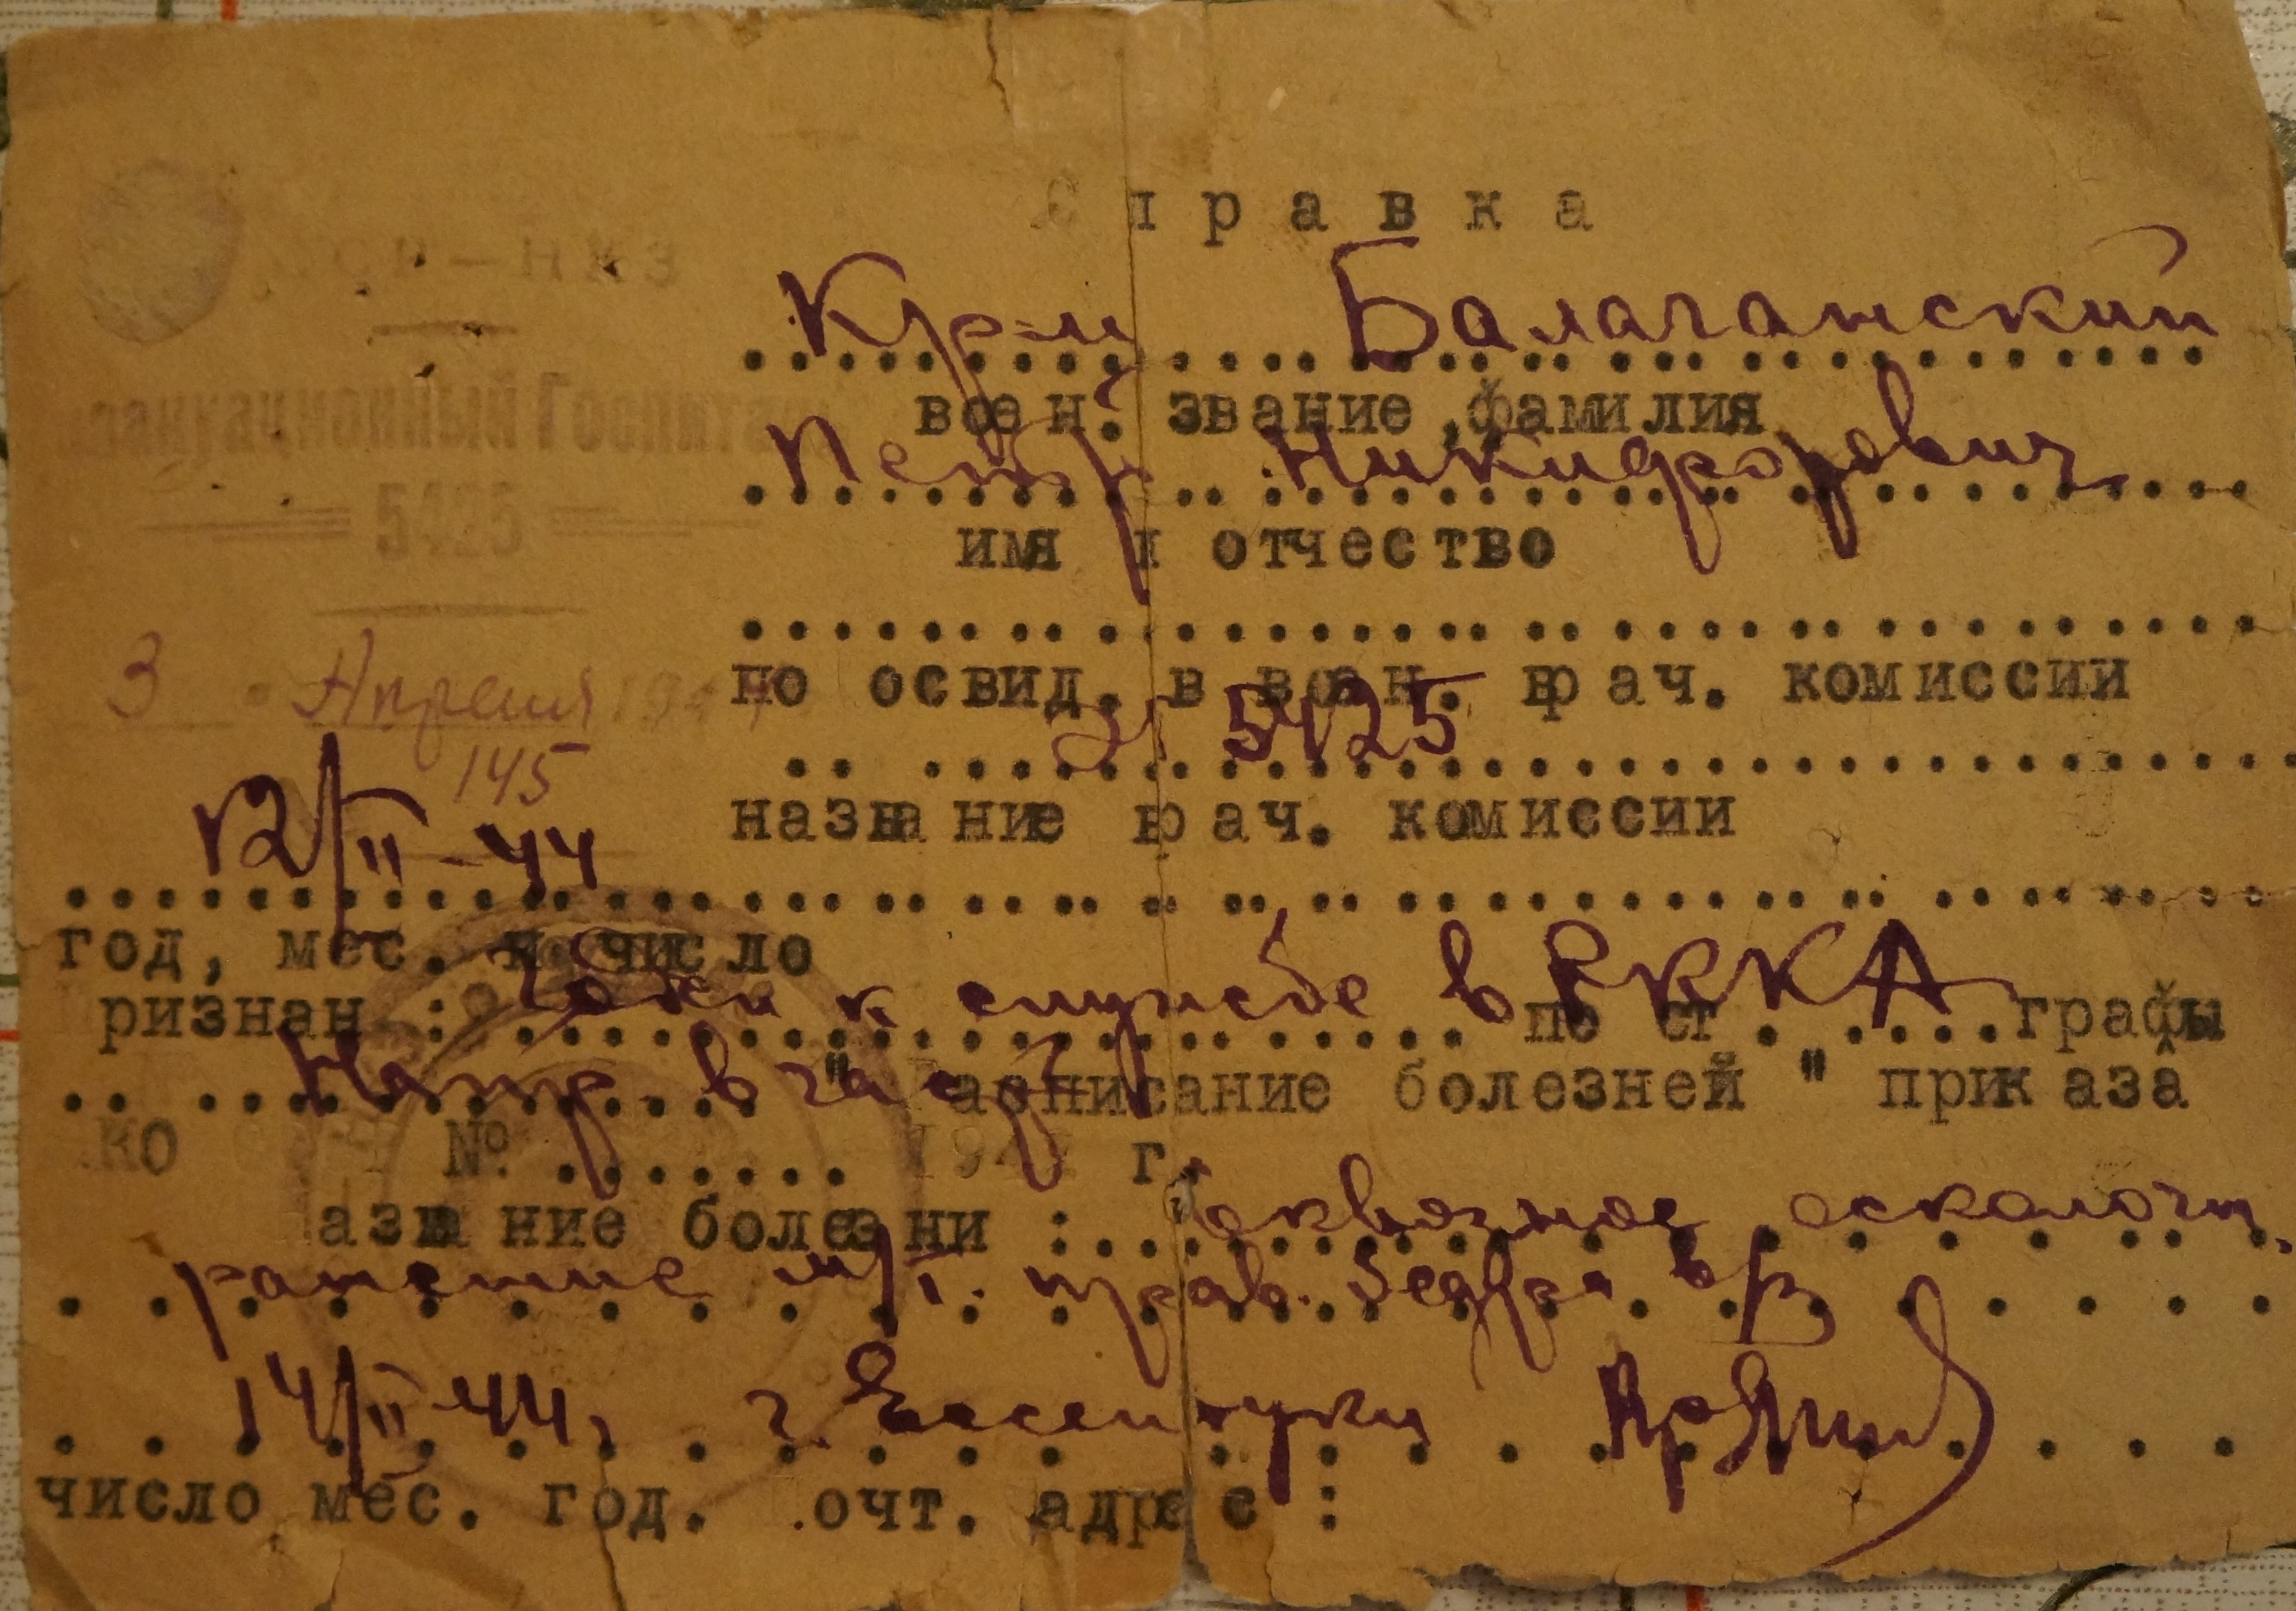 Справка
Кр-ц Балаганский
воен. звание, фамилия
Эвакуационный Госпиталь
Петр Никифорович
5425
имя и отчество
3 Апреля 1944
по освид. в воен. врач. комиссии
145
ЭГ 5425
название врач. комиссии
12/II-44
год, мес. и число
ризнан: Годен к службе в РККА по ст. .... графы
Напр. в часть "Расписание болезней" приказа
НКО СССР № ....... 1942 г.
азва ние болезни: Сквозное осколочн.
ранение м/т. прав. бедра
14/II-44, г. Ессентуки
число мес. год. Почт. адрес: